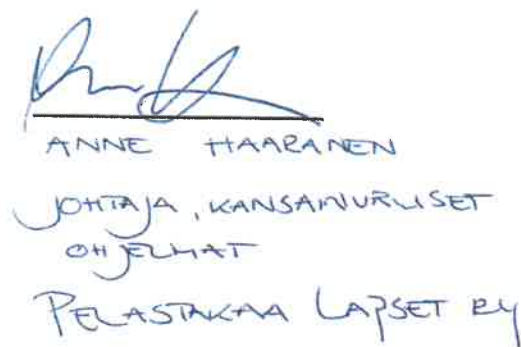 ANNE HAARANEN
JOHTAJA, KANSAINVÄLISET
OHJELMAT
PELASTAKAA LAPSET RY